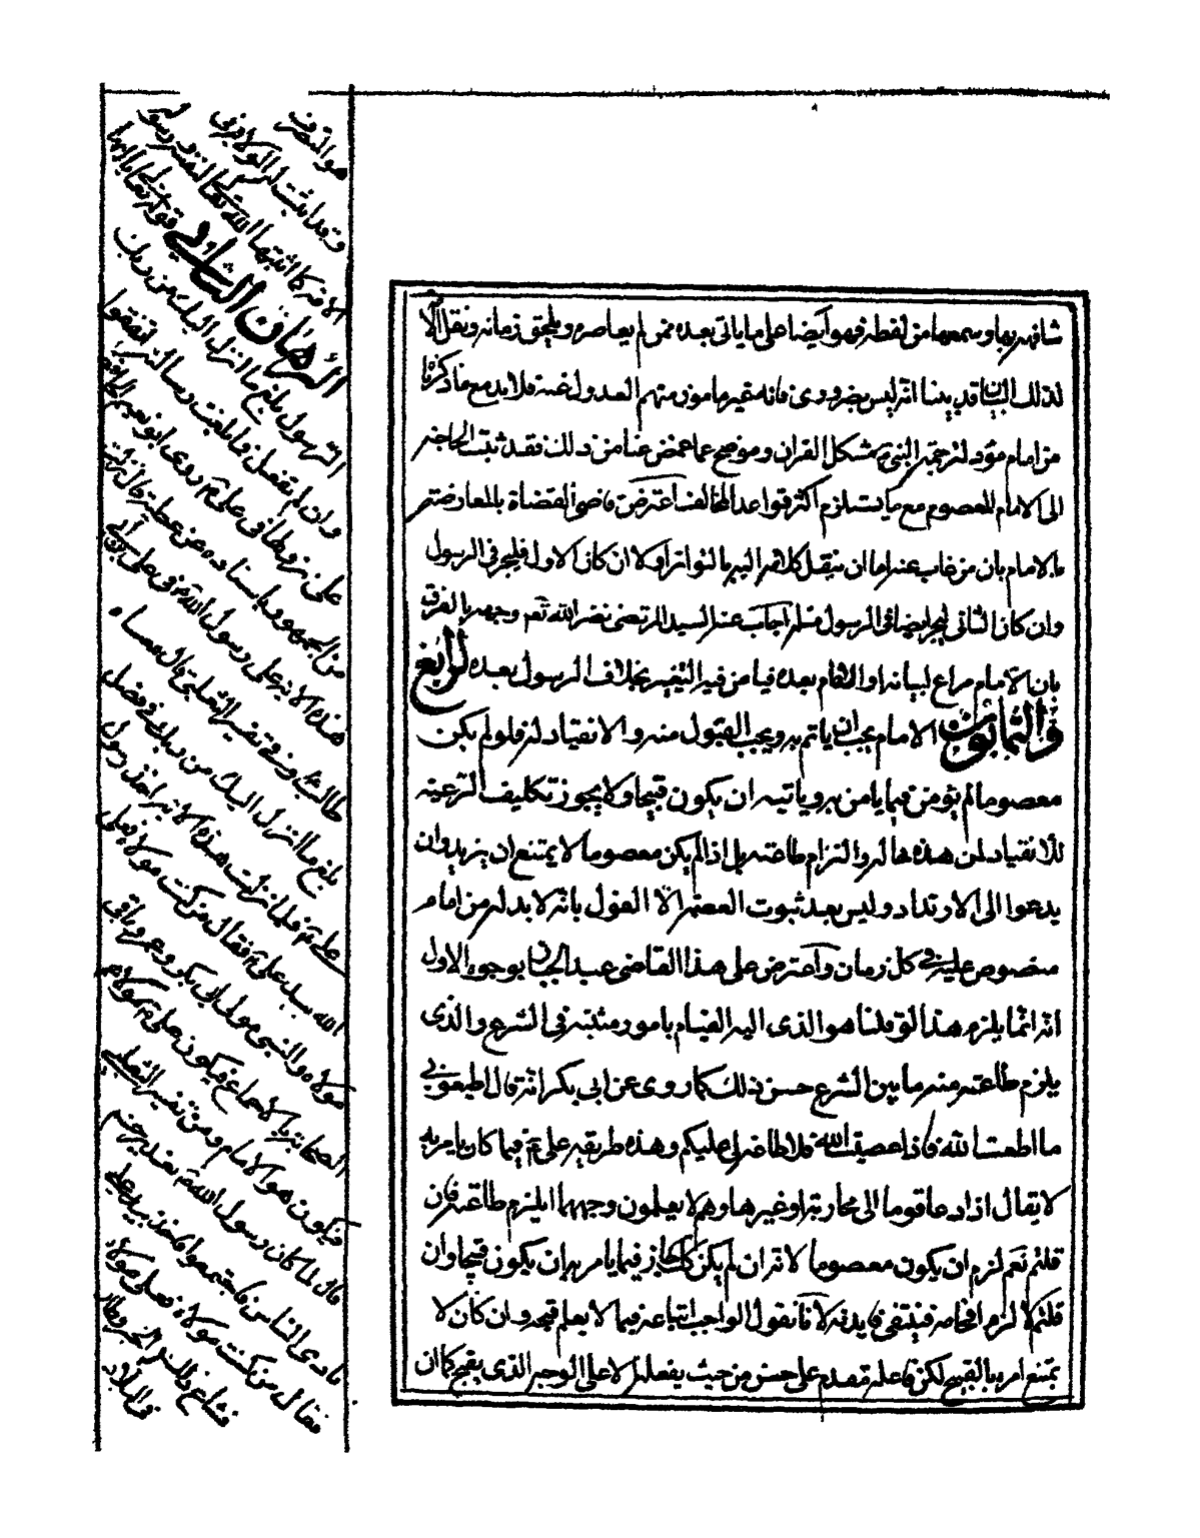 شافهه بها و سمعها من لفظه فهو أيضا على ما ياتى بعده ممن لم يعاصره و يلحق زمانه و نقل الا
لذلك البيان قد بينا انه ليس بضرورى فانه غير مامون منهم العدول عنه فلا بد مع ما ذكرناه
من امام مؤد لترجمة النبى ص مشكل القران و موضح عما غمض عنا من ذلك فقد ثبتت الحاجة
الى الامام المعصوم مع ما يستلزم اكثر قواعد المخالف اعترض قاضى القضاة بالمعارضة
بالامام بان من غاب عنه اما ان ينقل كلامه اليه بالتواتر او لا ان كان الاول فليجز فى الرسول
وان كان الثانى فليجز ايضا فى الرسول مثله اجاب عنه السيد المرتضى نضر الله تعـ وجهه بالفرق
بان الامام مراع لبيانه او الامام بعده فيامن فيه التغيير بخلاف الرسول بعده الرابع
والثمانون الامام يجب ان ياتم به و يجب القبول منه و الانقياد له فلو لم يكن
معصوما لم يؤمن فيما يامر به و ياتيه ان يكون قبيحا و لا يجوز تكليف الرعية
للانقياد لمن هذه حاله و التزام طاعته بل اذا لم يكن معصوما لا يمتنع ان يزيد وان
يدعوا الى الارتداد و ليس بعد ثبوت العصمة الا القول بانه لا بد له من امام
منصوص عليه فى كل زمان و اعترض على هذا القاضى عبد الجبار بوجوه الاول
انه انما يلزم هذا لو قلنا هو الذى اليه القيام بامور مثبتة فى الشرع و الذى
يلزم طاعته منه ما بين الشرع حسن ذلك كما روى عن ابى بكر انه قال اطيعونى
ما اطعت الله فاذا عصيت الله فلا طاعة لى عليكم و هذه طريقة على ع فيما كان يامر به
لا يقال اذا دعا قوما الى محاربة او غيرها و هم لا يعلمون وجهها ايلزم طاعته فان
قلتم نعم لزم ان يكون معصوما لانه ان لم يكن كك جاز فيما يامر به ان يكون قبيحا و ان
قلتم لا لزم افحامه فينتفى فايدته لانا نقول الواجب اتباعه فيما لا يعلم قبحه و ان كان لا
يمتنع امره بالقبيح لكن فاعله مقدم على حسن من حيث يفعله لا على الوجه الذى يقبح كما ان
هو التصرف
و قد اثبت له الولاية فى
الامة كما اثبتها الله تعالى لنفسه و رسوله
البرهان الثانى قوله تعالى يا ايها
الرسول بلغ ما انزل اليك من ربك
و ان لم تفعل فما بلغت رسالته اتفقوا
على نزولها فى على ع روى ابو نعيم الحافظ
من الجمهور باسناده عن عطية قال نزلت
هذه الاية على رسول الله ص فى على بن ابى
طالب و فى تفسير الثعلبى قال معناه
بلغ ما انزل اليك من ربك فى فضل
على ع فلما نزلت هذه الاية اخذ رسول
الله بيد على ع فقال من كنت مولاه فعلى
مولاه و النبى مولى ابى بكر و عمر و باقى
الصحابة بالاجماع فيكون على ع مولاهم
فيكون هو الامام و من تفسير الثعلبى
قال لما كان رسول الله ص بغدير خم
نادى الناس فاجتمعوا فاخذ بيد على
فقال من كنت مولاه فعلى مولاه
فشاع ذلك الخبر و طار
فى البلاد